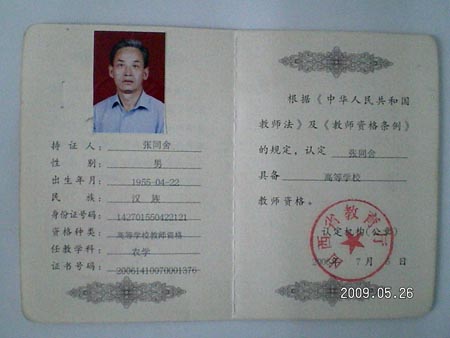 持证人： 张同舍
性别： 男
出生年月： 1955-04-22
民族： 汉 族
身份证号码： 142701550422121
资格种类： 高等学校教师资格
任教学科： 农学
证书号码： 20061410070001376
根据《中华人民共和国
教师法》及《教师资格条例》
的规定，认定 张同舍
具备 高等学校
教师资格。
西省教育厅
认定机构(公章)
年 7月 日
2009.05.26